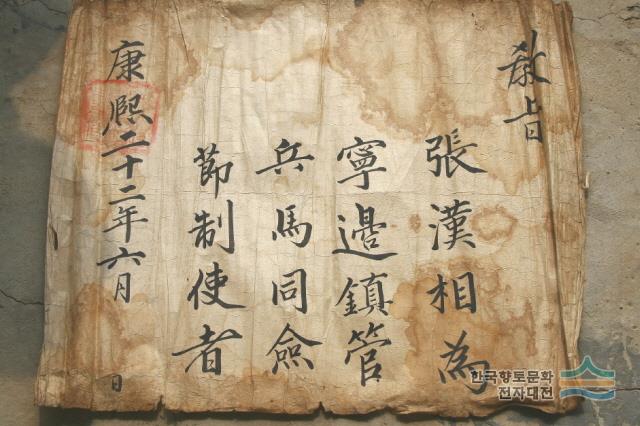 敎旨
張漢相為
寧邉鎮管
兵馬同僉
節制使者
康熙二十二年六月 日
한국향토문화
전자대전